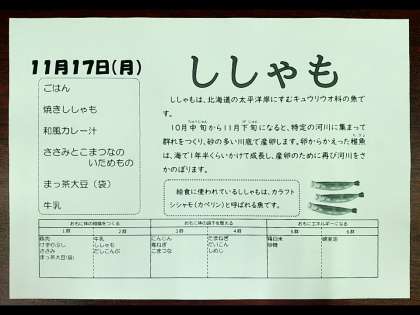 11月17日(月)
ごはん
焼きししゃも
和風カレー汁
ささみとこまつなの
いためもの
まっ茶大豆(袋)
牛乳
ししゃも
ししゃもは、北海道の太平洋岸にすむキュウリウオ科の魚です。
10月中旬から11月下旬になると、特定の河川に集まって
群れをつくり、砂の多い川底で産卵します。卵からかえった稚魚
は、海で1年半くらいかけて成長し、産卵のために再び河川をさ
かのぼります。
給食に使われているししゃもは、カラフト
シシャモ(カペリン)と呼ばれる魚です。
おもに体の組織をつくる おもに体の調子を整える おもにエネルギーになる
1群 2群 3群 4群 5群 6群
豚肉 牛乳 にんじん たまねぎ 精白米
けずりぶし ししゃも 長ねぎ だいこん 砂糖
ささみ だしこんぶ こまつな しめじ
まっ茶大豆(袋)